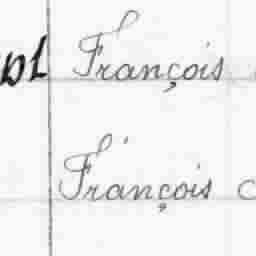 François
François